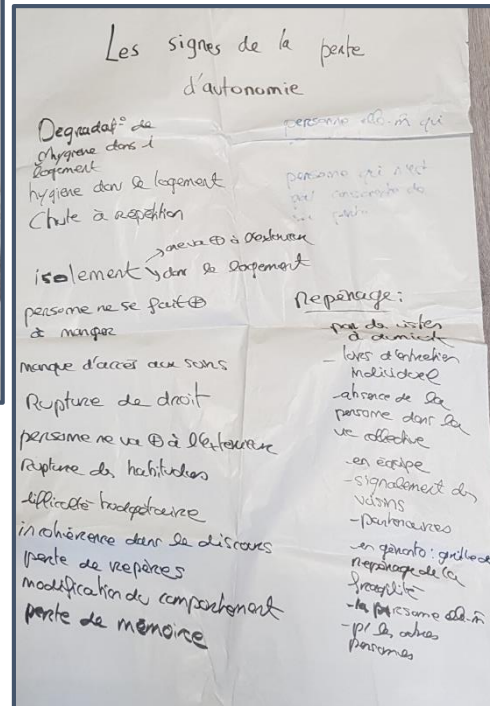 Les signes de la perte
d'autonomie
Degradat° de
l'hygiene dans
logement
hygiène dans le logement
Chute à repétition
isolement
ne va ⊕ à l'exterieur
dans le logement
personne ne se fait ⊕
à manger
manque d'accès aux soins
Rupture de droit
personne ne va ⊕ à l'exterieur
Rupture des habitudes
difficulté budgétaire
incohérence dans le discours
perte de repères
modification du comportement
perte de mémoire
personne elle-m̂ qui
personne qui n'est
Repérage :
à domicile
- lors d'entretien
individuel
- absence de la
personne dans la
vie collective
- en équipe
- signalement des
voisins
- partenaires
- en géronto : grille de
repérage de la
fragilité
- la personne elle-m̂
- p/ les autres
personnes